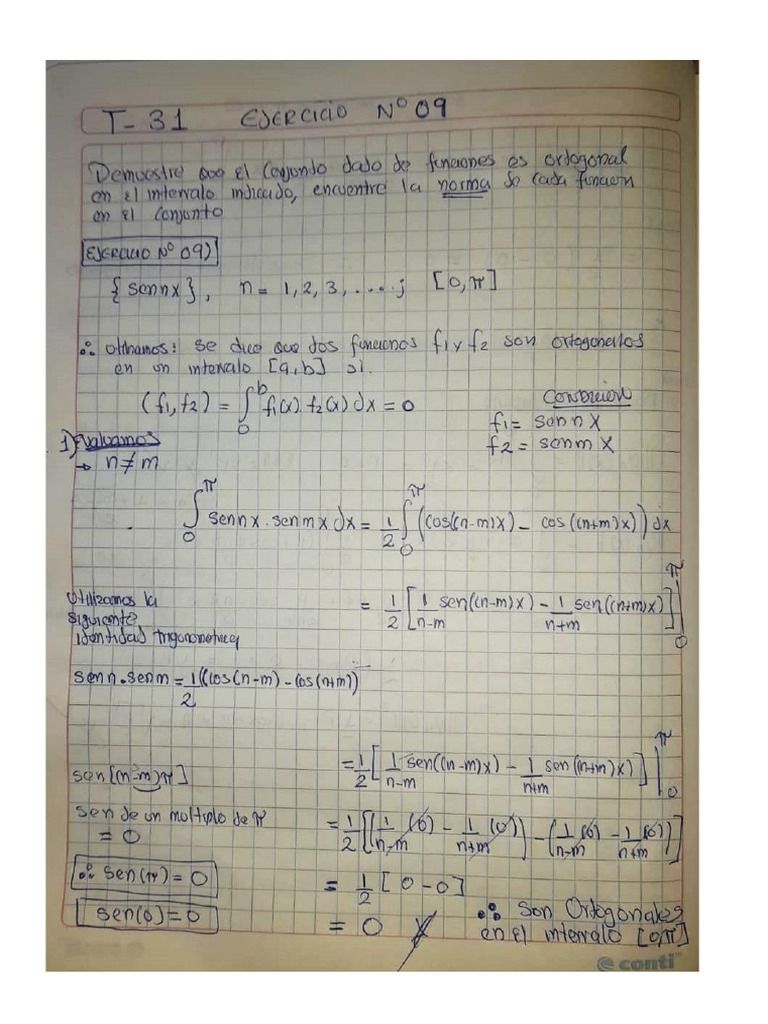 T-31 EJERCICIO N° 09
Demuestre que el Conjunto dado de funciones es ortogonal
en el intervalo indicado, encuentre la norma de cada función
en el conjunto
EJERCICIO N° 09)
{sen nx}, n = 1, 2, 3, ....; [0, π]
∴ Se dice que dos funciones f1 y f2 son ortogonales
en un intervalo [a,b] si.
(f1, f2) = ∫₀ᵇ f1(x). f2(x) dx = 0
CONDICIÓN
f1 = sen n x
f2 = sen m x
1) Evaluamos
→ n ≠ m
∫₀^π sen nx . sen mx dx = 1/2 ∫₀^π (cos((n-m)x) - cos((n+m)x)) dx
Utilizamos la
siguiente
identidad trigonometrica
= 1/2 [1/(n-m) sen((n-m)x) - 1/(n+m) sen((n+m)x)] |₀^π
sen n . sen m = 1/2 ((cos(n-m) - cos(n+m))
= 1/2 [1/(n-m) sen((n-m)x) - 1/(n+m) sen((n+m)x)] |₀^π
sen[(n-m)π]
sen de un multiplo de π
= 0
= 1/2 [(1/(n-m) (0) - 1/(n+m) (0)) - (1/(n-m) (0) - 1/(n+m) (0))]
∴ sen(π) = 0
= 1/2 [0-0]
sen(0) = 0
= 0
∴ Son Ortogonales
en el intervalo [0,π]
conti